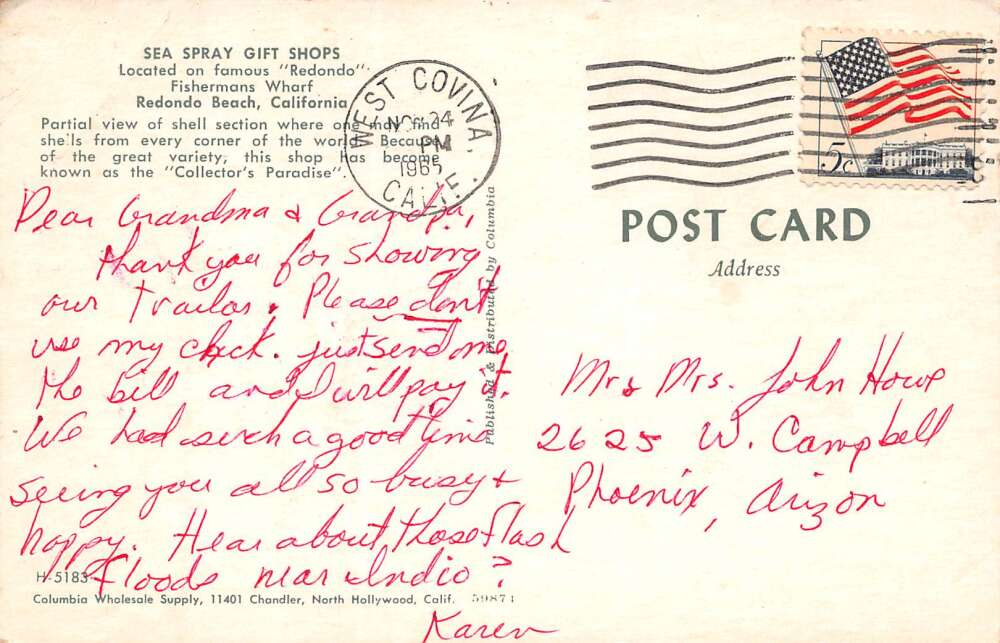 SEA SPRAY GIFT SHOPS
Located on famous "Redondo"
Fishermans Wharf
Redondo Beach, California
Partial view of shell section where one may find
shells from every corner of the world. Because
of the great variety, this shop has become
known as the "Collector's Paradise".
WEST COVINA,
NOV 24
PM
1965
CALIF.
5c
POST CARD
Address
Dear Grandma & Grandpa,
thank you for showing
our trailor. Please don't
use my check. just send me
the bill and I will pay it.
We had such a good time
seeing you all so busy +
happy. Hear about those flash
floods near Indio?
Karen
Mr & Mrs. John Howe
2625 W. Campbell
Phoenix, Arizon
Published & Distributed by Columbia
H-5183
Columbia Wholesale Supply, 11401 Chandler, North Hollywood, Calif. 59871